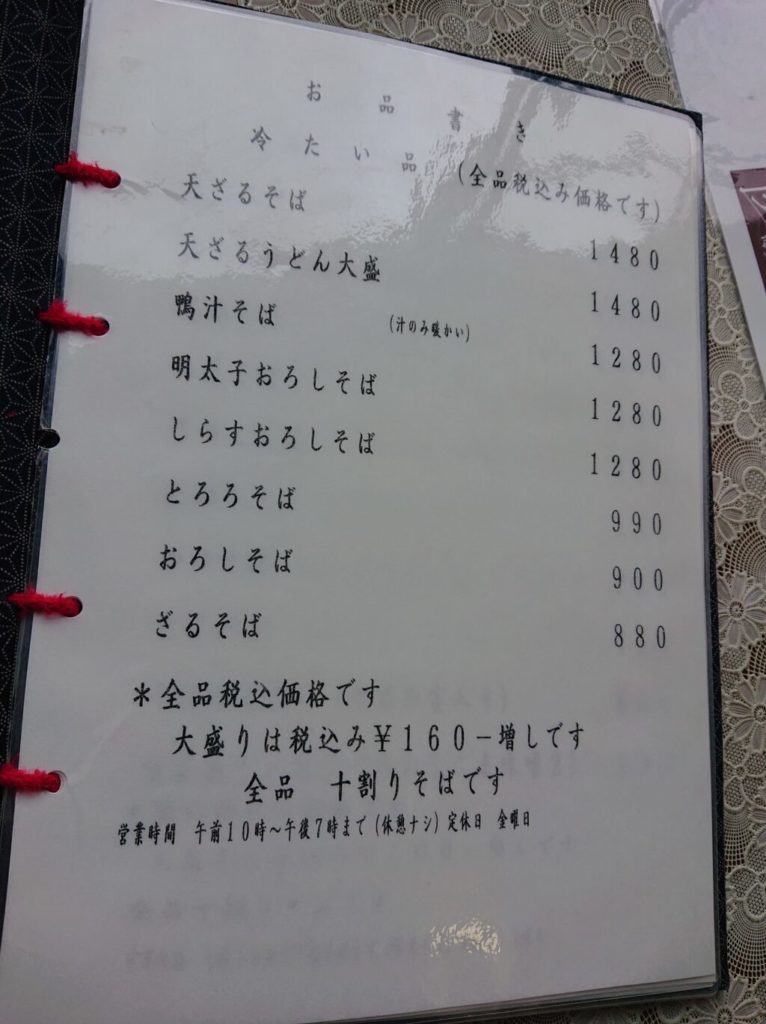 お品書き
冷たい品 (全品税込み価格です)
天ざるそば 1480
天ざるうどん大盛 1480
鴨汁そば (汁のみ暖かい) 1280
明太子おろしそば 1280
しらすおろしそば 1280
とろろそば 990
おろしそば 900
ざるそば 880
*全品税込価格です
大盛りは税込み¥160-増しです
全品 十割りそばです
営業時間 午前10時~午後7時まで(休憩ナシ) 定休日 金曜日